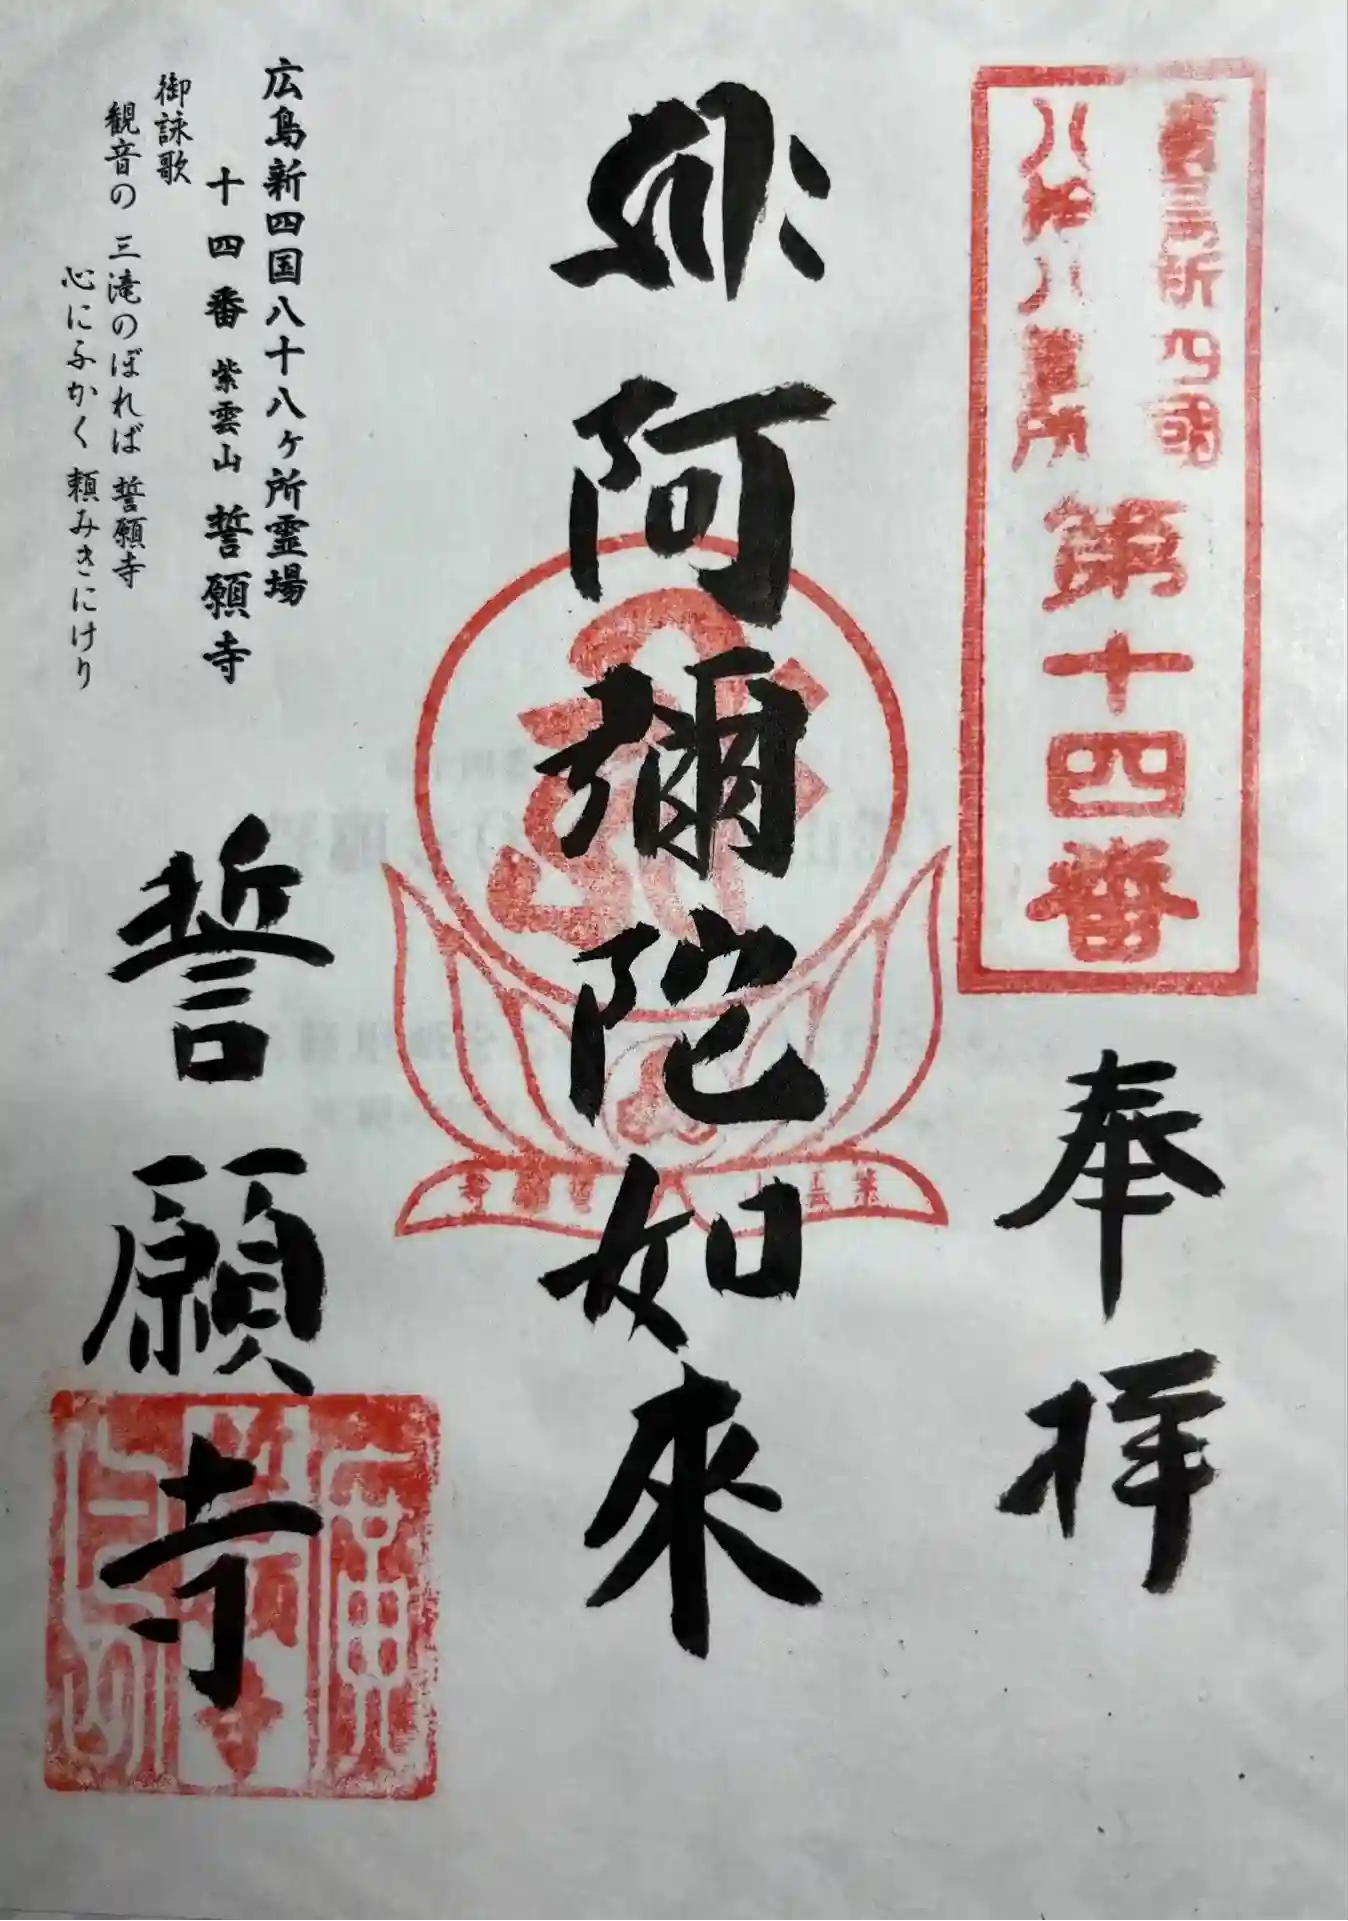 廣島新四國
八拾八箇所
第十四番
奉拝
阿彌陀如來
紫雲山 誓願寺
広島新四国八十八ヶ所霊場
十四番 紫雲山 誓願寺
御詠歌
観音の 三滝のぼれば 誓願寺
心にふかく 頼みきにけり
誓願寺